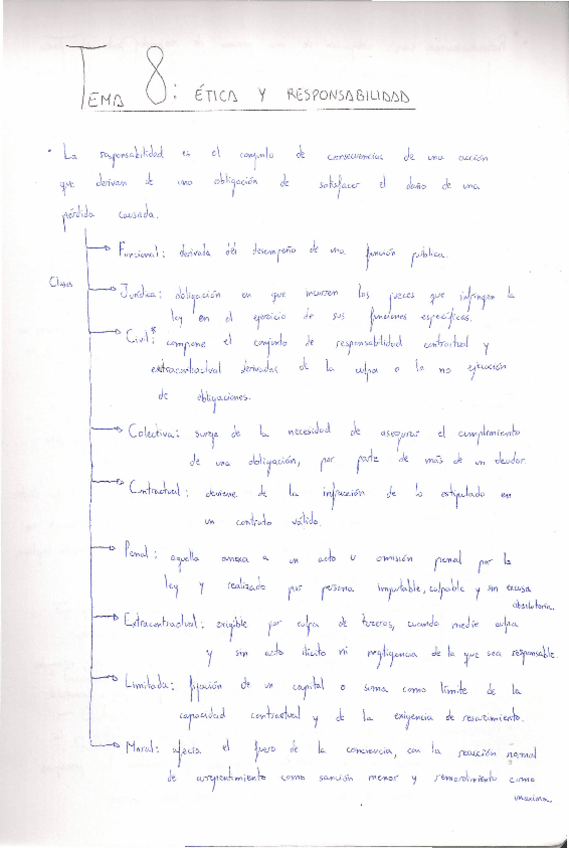 TEMA 8: ÉTICA Y RESPONSABILIDAD
· La responsabilidad es el conjunto de consecuencias de una acción
que derivan de una obligación de satisfacer el daño de una
pérdida causada.
Clases
Funcional: derivada del desempeño de una función pública.
Jurídica: obligación en que incurren los jueces que infringen la
ley en el ejercicio de sus funciones específicas.
Civil*: compone el conjunto de responsabilidad contractual y
extracontractual derivadas de la culpa o la no ejecución
de obligaciones.
Colectiva: surge de la necesidad de asegurar el cumplimiento
de una obligación, por parte de más de un deudor.
Contractual: deviene de la infracción de lo estipulado en
un contrato válido.
Penal: aquella anexa a un acto u omisión penal por la
ley y realizado por persona imputable, culpable y sin excusa
absolutoria.
Extracontractual: exigible por culpa de terceros, cuando medie culpa
y sin acto ilícito ni negligencia de la que sea responsable.
Limitada: fijación de un capital o suma como límite de la
capacidad contractual y de la exigencia de resarcimiento.
Moral: afecta el fuero de la conciencia, con la reacción normal
de arrepentimiento como sanción menor y remordimiento como
máxima.